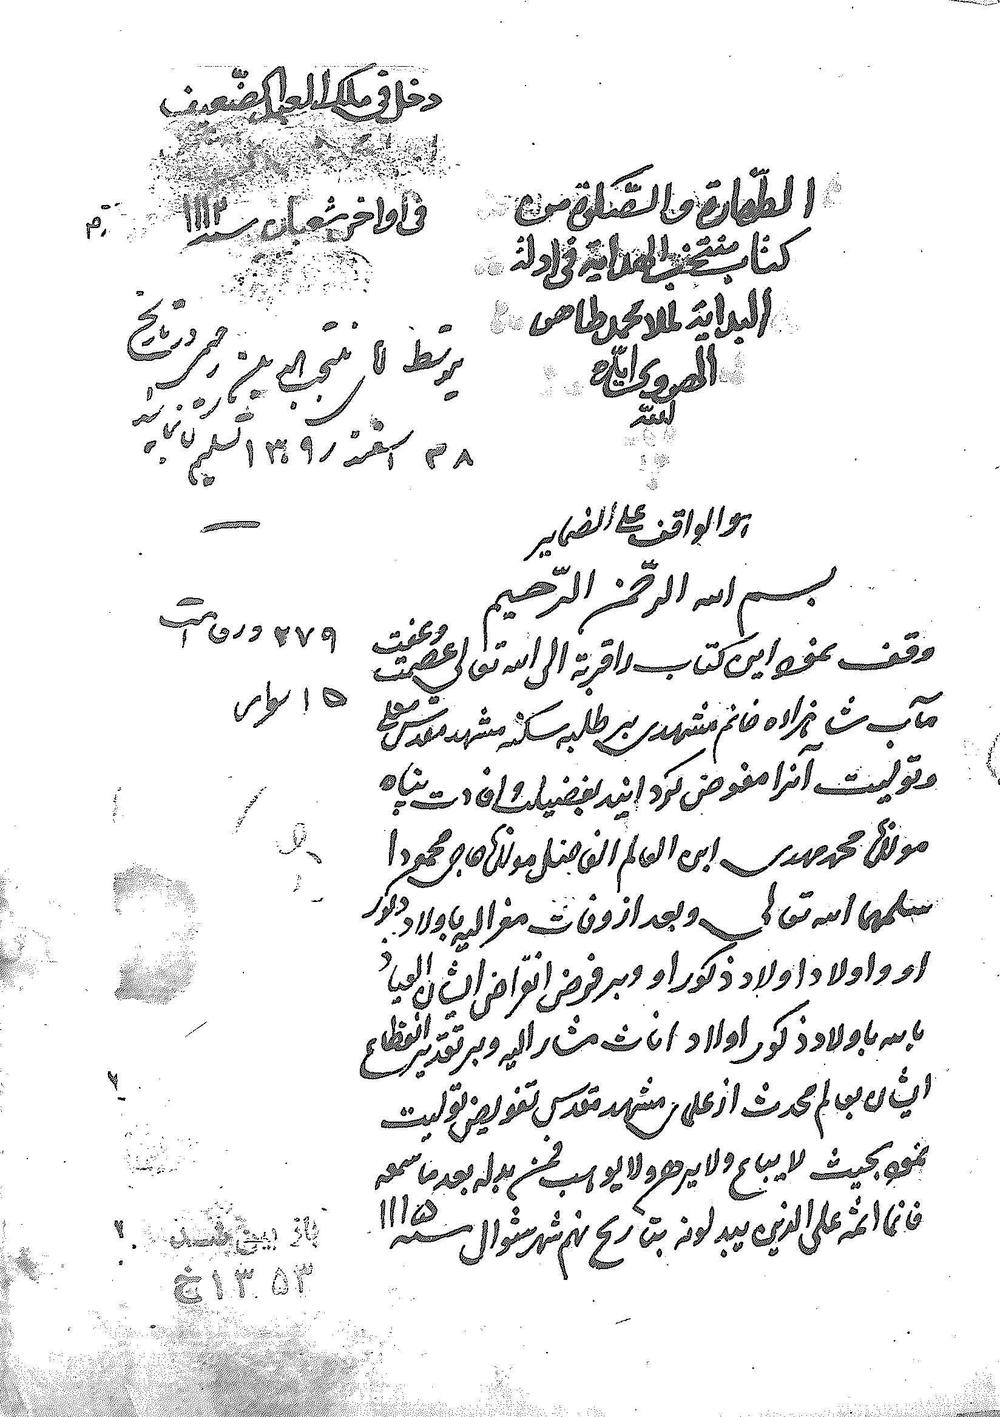 دخل فی ملک العبد الضعیف
فی اواخر شعبان سنه ١١١٢
الطهارة والصلوة من
کتاب منتخب الهدایة فی ادلة
البدایة لملا محمد طاهر
ایده
الله
توسط منتجب الدین رحیمی در تاریخ
٢٨ اسفند ١٣٠٩ تسلیم
هو الواقف علی الضمایر
بسم الله الرحمن الرحیم
وقف نمود این کتاب را قربة الی الله تعالی عصمت وعفت
مآب شاهزاده خانم مشهدی بر طلبه سکنه مشهد مقدس معلی
وتولیت آنرا مفوض گردانید بفضیلت و افادت پناه
مولانا محمد مهدی ابن العالم الفاضل مولانا حاجی محمودا
سلمهما الله تعالی وبعد از وفات مشار الیه باولاد ذکور
او و اولاد اولاد ذکور او وبر فرض انقراض ایشان العیاذ
بالله باولاد ذکور اولاد اناث مشار الیه وبر تقدیر انقطاع
ایشان بعالم محدث از علمای مشهد مقدس تفویض تولیت
نمود بحیث لا یباع ولا یرهن ولا یوهب فمن بدله بعد ما سمعه
فانما اثمه علی الذین یبدلونه بتاریخ نهم شهر شوال سنه ١١١٥
٢٧٩ ورق است
١٥ سطر
باز بینی شد
١٣٥٣ خ